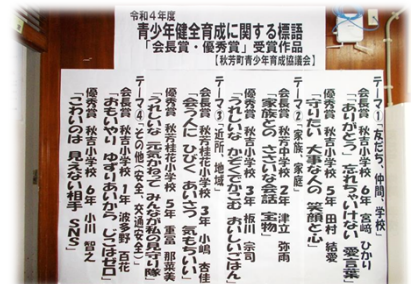 令和４年度
青少年健全育成に関する標語
「会長賞・優秀賞」受賞作品
【秋芳町青少年育成協議会】
テーマ①「友だち、仲間、学校」
会長賞 秋吉小学校 ６年 宮﨑 ひかり
「ありがとう」 忘れちゃいけない 愛言葉」
優秀賞 秋吉小学校 ５年 田村 結愛
「守りたい 大事な人の 笑顔と心」
テーマ②「家族、家庭」
会長賞 秋芳中学校 ２年 津立 弥雨
「家族との ささいな会話 宝物」
優秀賞 秋芳桂花小学校 ３年 板川 宗司
「うれしいな かぞくでかこむ おいしいごはん」
テーマ③「近所、地域」
会長賞 秋芳桂花小学校 ３年 小嶋 杏佳
「会う人に ひびく あいさつ 気もちいい」
優秀賞 秋芳桂花小学校 ５年 重富 那菜美
「うれしいな 元気かねって みんなが私の見守り隊」
テーマ④「その他（安全、交通安全）」
会長賞 秋吉小学校 １年 波多野 百花
「おもいやり ゆずりあいから じこはゼロ」
優秀賞 秋吉小学校 ６年 小川 智之
「こわいのは 見えない相手 ＳＮＳ」